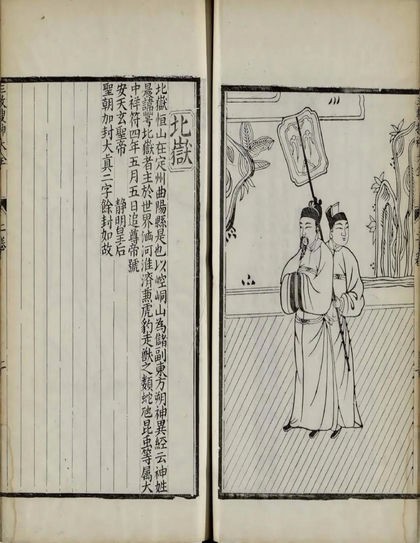 北嶽
北嶽恒山在定州曲陽縣是也以崆峒山為儲副東方朔神異經云神姓
晨諱蕚北嶽者主於世界河淮濟兼虎豹走獸之類蛇虺昆虫等属大
中祥符四年五月五日追尊帝號
安天玄聖帝　靜明皇后
聖朝加封大貞二字餘封如故